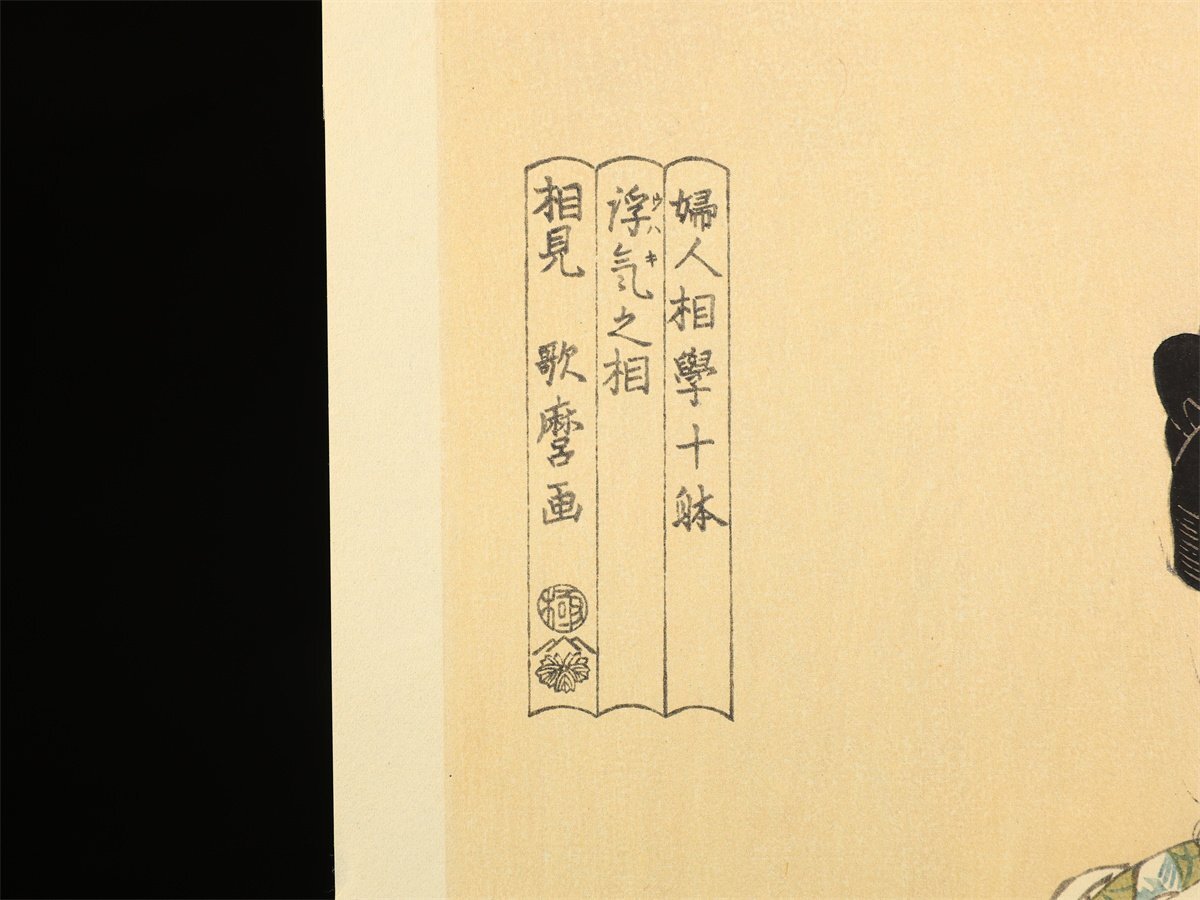 婦人相學十躰
浮気之相
ウハキ
相見 歌麿画
極